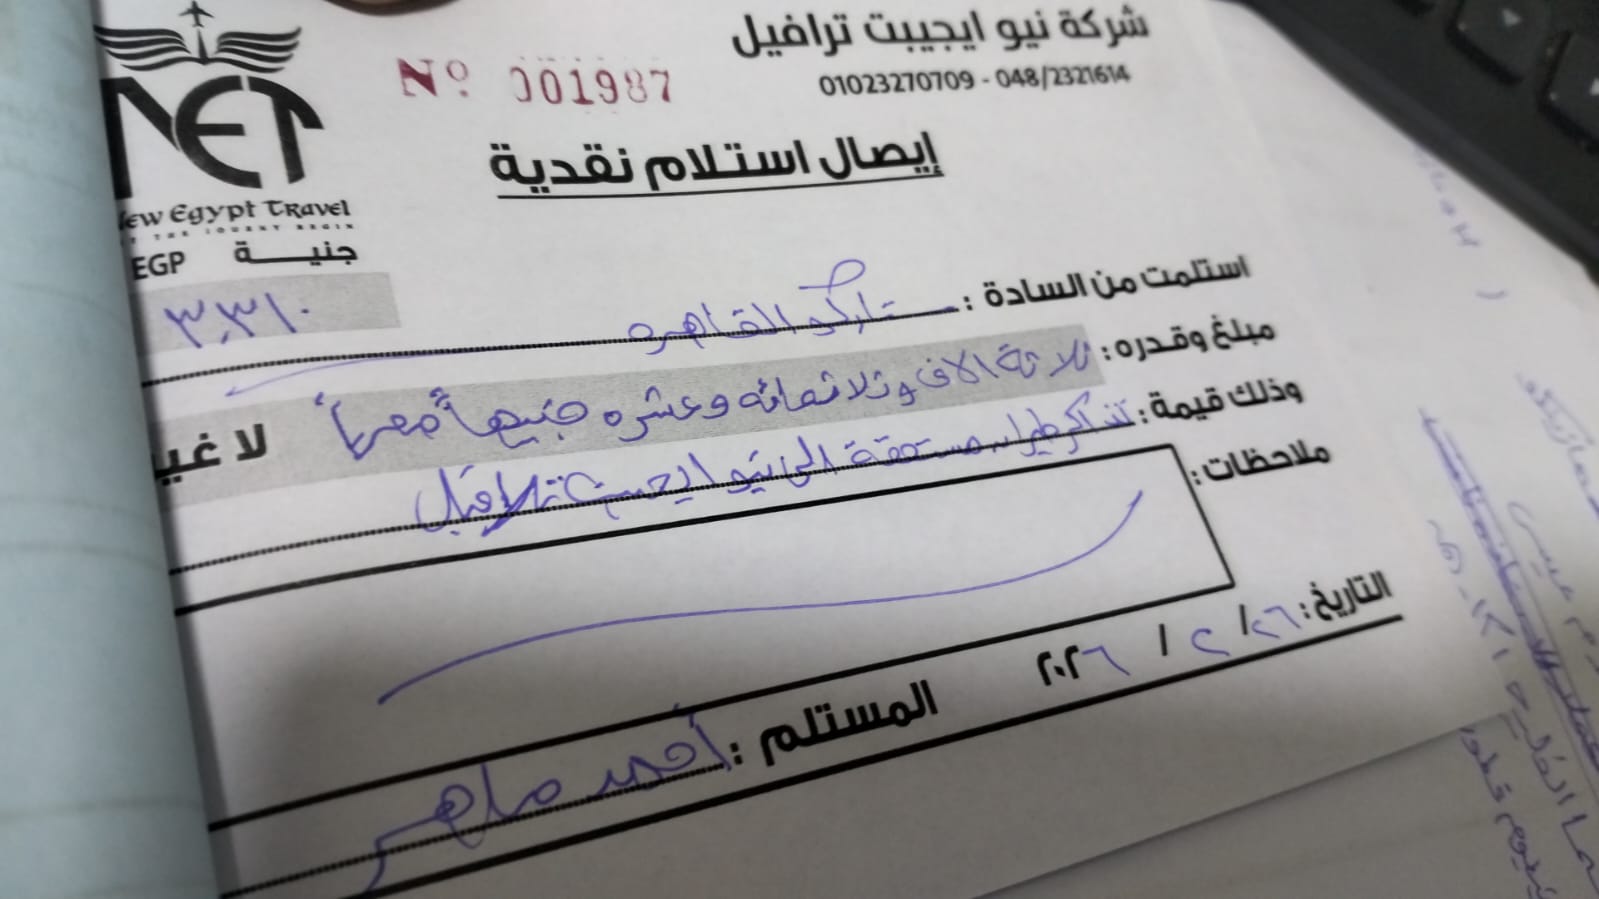 شركة نيو ايجيبت ترافيل
01023270709 - 048/2321614
Nº 001987
NET
New Egypt Travel
إيصال استلام نقدية
EGP جنية
٣٣١٠
استلمت من السادة : ستاركو القاهره
مبلغ وقدره : ثلاثة الاف وثلاثمائه وعشره جنيهاً مصرياً لا غير
وذلك قيمة : تذاكر طيران مستحقة الى نيو ايجيبت ترافيل
ملاحظات :
التاريخ : ٢٦ / ٢ / ٢٠٢٦
المستلم : أحمد ماهر